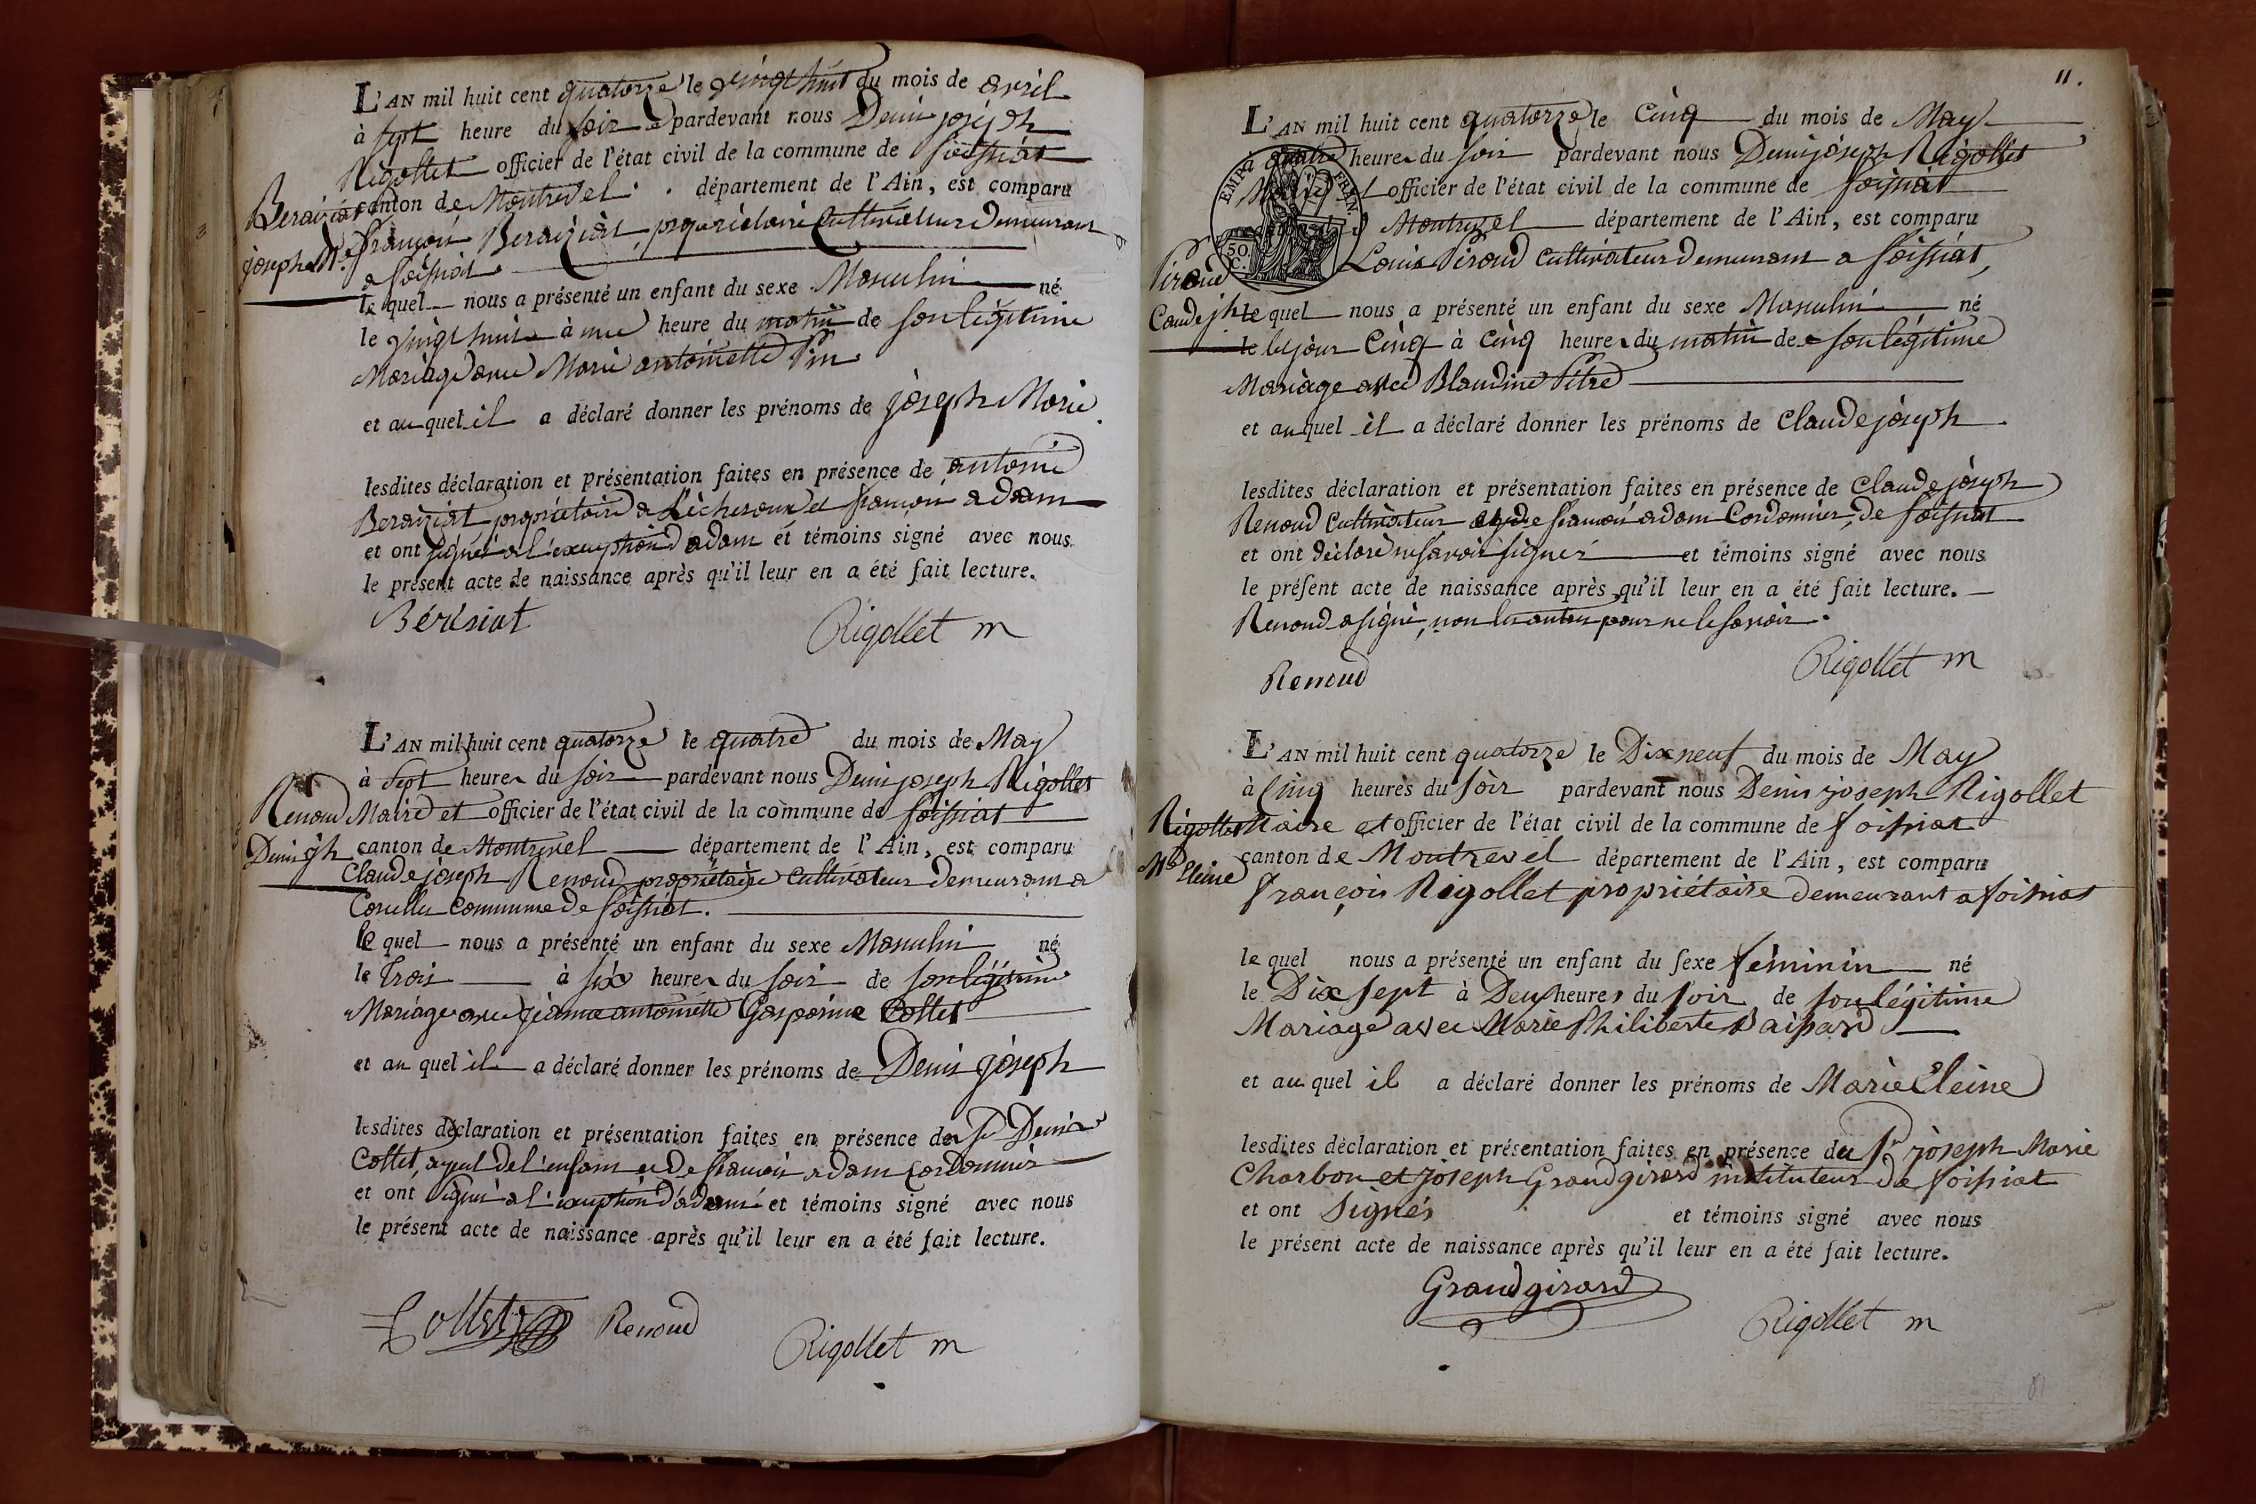 L'AN mil huit cent quatorze le vingt huit du mois de avril
à sept heure du soir pardevant nous Denis joseph
Rigollet officier de l'état civil de la commune de foissiat
canton de Montrevel département de l'Ain, est comparu
Beraiziat
joseph M.ie
françois Beraiziat, propriétaire cultivateur demeurant
a foissiat
le quel nous a présenté un enfant du sexe Masculin né
le vingt huit à une heure du matin de son légitime
Mariage avec Marie antoinette Pin
et au quel il a déclaré donner les prénoms de joseph Marie.
lesdites déclaration et présentation faites en présence de antoine
Beraiziat propriétaire a Lécheroux et françois adam
et ont signés a l'exception d'adam et témoins signé avec nous
le présent acte de naissance après qu'il leur en a été fait lecture.
Bérésiat
Rigollet m
L'AN mil huit cent quatorze le quatre du mois de May
à Sept heures du soir pardevant nous Denis joseph Rigollet
Renoud
Denis jph
Maire et officier de l'état civil de la commune de foissiat
canton de Montrevel département de l'Ain, est comparu
Claude joseph Renoud propriétaire cultivateur demeurant a
commune de foissiat.
le quel nous a présenté un enfant du sexe Masculin né
le Trois à six heures du soir de son légitime
Mariage avec jéanne antoinette Gasparine Collet
et au quel il a déclaré donner les prénoms de Denis joseph
lesdites déclaration et présentation faites en présence de Sr Denis
Collet, ayeul de l'enfant et de françois adam cordonnier
et ont signé a l'exception d'adam et témoins signé avec nous
le présent acte de naissance après qu'il leur en a été fait lecture.
Collet Renoud
Rigollet m
11.
L'AN mil huit cent quatorze le cinq du mois de May
à quatre heures du soir pardevant nous Denis joseph Rigollet
EMP. FRAN.
50 C.
Maire et officier de l'état civil de la commune de foissiat
Montrevel département de l'Ain, est comparu
Piroud
Caude jph
Louis Piroud cultivateur demeurant a foissiat,
le quel nous a présenté un enfant du sexe Masculin né
le cejour cinq à cinq heures du matin de son légitime
Mariage avec Blandine Pitre
et au quel il a déclaré donner les prénoms de claude joseph.
lesdites déclaration et présentation faites en présence de claude joseph
Renoud cultivateur et de françois adam cordonnier, de foissiat
et ont déclaré ne savoir signer et témoins signé avec nous
le présent acte de naissance après qu'il leur en a été fait lecture.
Renoud a signé, non les autres pour ne le savoir.
Renoud
Rigollet m
L'AN mil huit cent quatorze le Dix neuf du mois de May
à cinq heures du soir pardevant nous Denis joseph Rigollet
Rigollet
Me Eleine
Maire et officier de l'état civil de la commune de foissiat
canton de Montrevel département de l'Ain, est comparu
françois Rigollet propriétaire demeurant a foissiat
le quel nous a présenté un enfant du sexe féminin né
le Dix sept à Deux heures du soir de son légitime
Mariage avec Marie Philiberte Baipard
et au quel il a déclaré donner les prénoms de Marie Eleine
lesdites déclaration et présentation faites en présence du Sr joseph Marie
Charbon et joseph Grandgirard instituteur de foissiat
et ont Signés et témoins signé avec nous
le présent acte de naissance après qu'il leur en a été fait lecture.
Grandgirard
Rigollet m